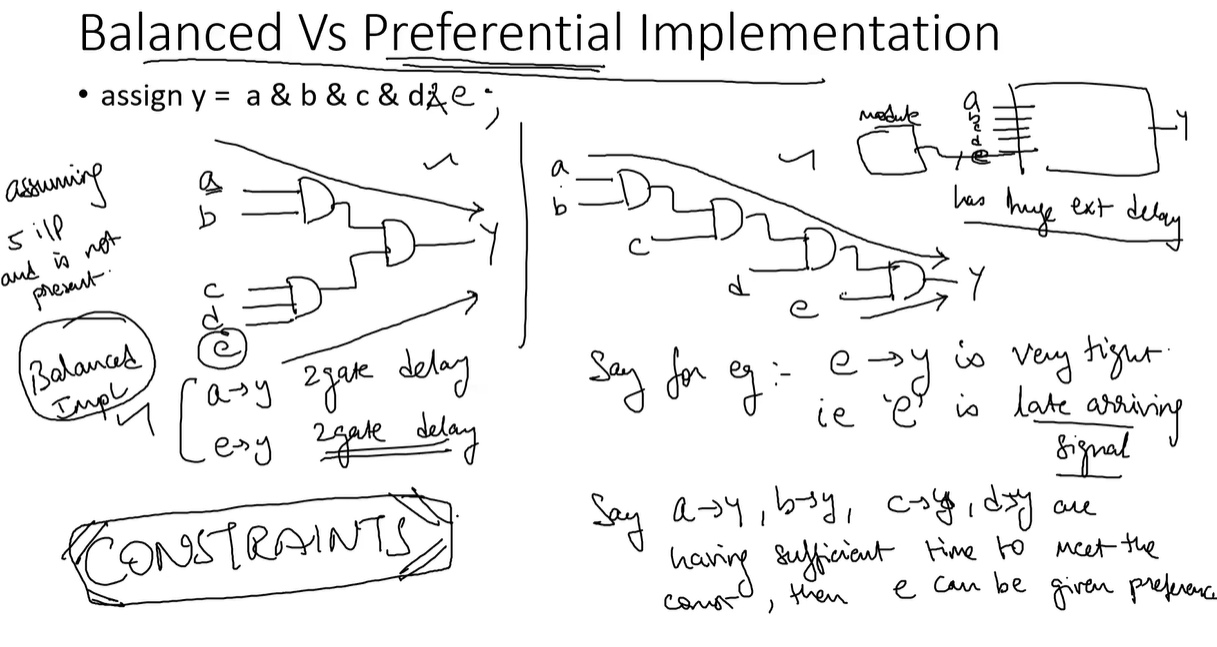 Balanced Vs Preferential Implementation
• assign y = a & b & c & d & e ;
assuming
5 i/p
and is not
present.
Balanced
Impl
a
b
c
d
e
Y
a→y 2gate delay
e→y 2gate delay
CONSTRAINTS
a
b
c
d
e
Y
module
a
b
c
d
e
Y
has huge ext delay
Say for eg :- e→y is very tight.
ie 'e' is late arriving
signal
Say a→y, b→y, c→y, d→y are
having sufficient time to meet the
const, then e can be given preference